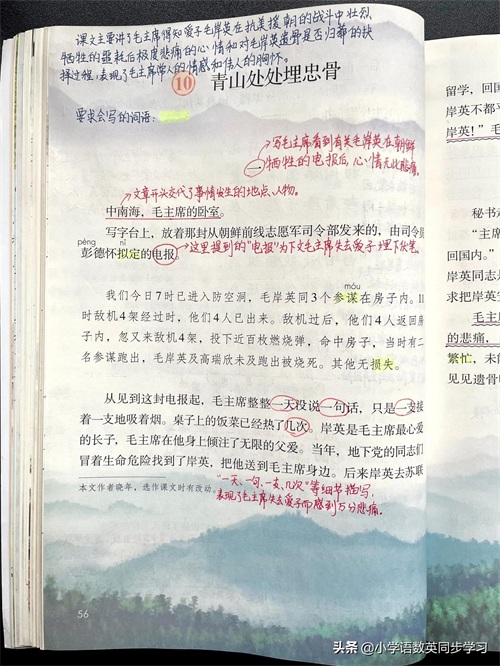 课文主要讲了毛主席得知爱子毛岸英在抗美援朝的战斗中壮烈
牺牲的噩耗后极度悲痛的心情和对毛岸英遗骨是否归葬的抉
择过程,表现了毛主席常人的情感和伟人的胸怀。
10 青山处处埋忠骨
要求会写的词语:
写毛主席看到有关毛岸英在朝鲜
一 牺牲的电报后,心情无比悲痛。
文章开头交代了事情发生的地点、人物。
中南海,毛主席的卧室。
写字台上,放着那封从朝鲜前线志愿军司令部发来的,由司令
péng nǐ
彭德怀拟定的电报。 这里提到的"电报"为下文毛主席失去爱子埋下伏笔。
móu
我们今日7时已进入防空洞,毛岸英同3个参谋在房子内。11
时敌机4架经过时,他们4人已出来。敌机过后,他们4人返回
子内,忽又来敌机4架,投下近百枚燃烧弹,命中房子,当时有二
名参谋跑出,毛岸英及高瑞欣未及跑出被烧死。其他无损失。
从见到这封电报起,毛主席整整一天没说一句话,只是一支接
着一支地吸着烟。桌子上的饭菜已经热了几次。岸英是毛主席最心爱
的长子,毛主席在他身上倾注了无限的父爱。当年,地下党的同志们
冒着生命危险找到了岸英,把他送到毛主席身边。后来岸英去苏联
本文作者晓年,选作课文时有改动。
"一天、一句、一支、几次"等细节描写,
表现了毛主席失去爱子而感到万分悲痛。
56
留学,回国
岸英不都平
岸英!"毛
秘书
"主席
回国内。"
岸英同志是
求把岸英
毛主
的悲痛,
繁忙,未
见见遗骨
头条 @小学语数英同步学习